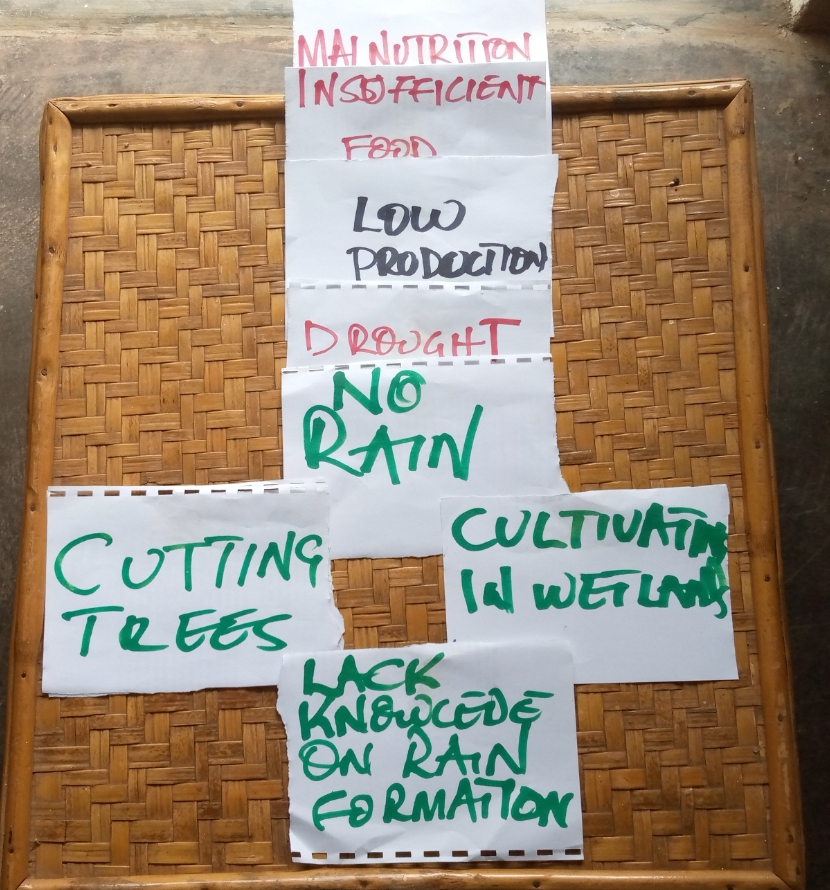 MALNUTRITION
INSUFFICIENT
FOOD
LOW
PRODUCTION
DROUGHT
NO
RAIN
CUTTING
TREES
CULTIVATING
IN WETLANDS
LACK
KNOWLEDE
ON RAIN
FORMATION